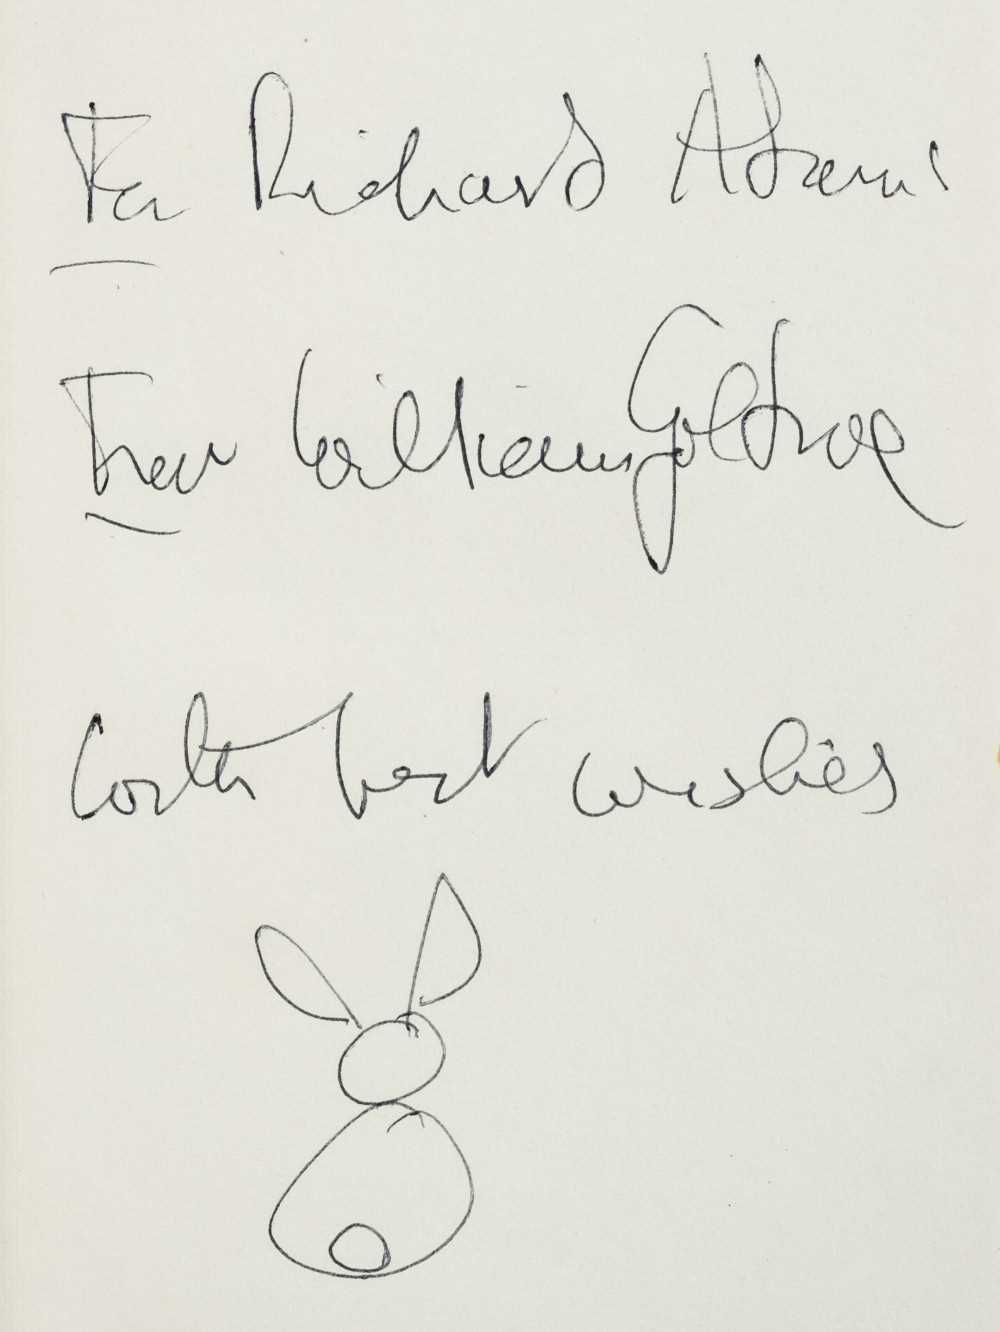 For Richard Adams
From William Golding
with best wishes